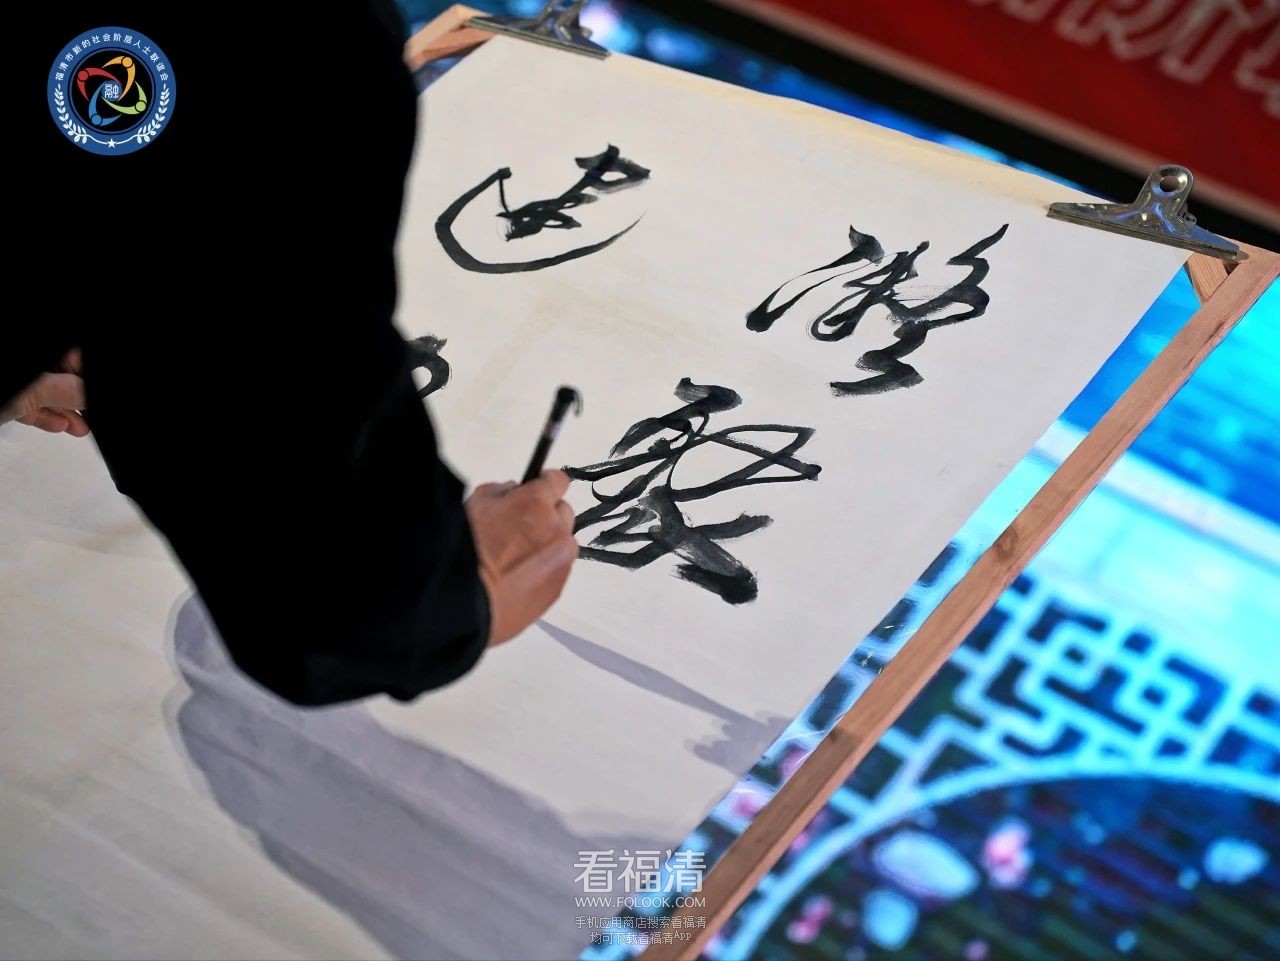 福清市新的社会阶层人士联谊会
融
凝
聚
建
看福清
WWW.FQLOOK.COM
手机应用商店搜索看福清
均可下载看福清App